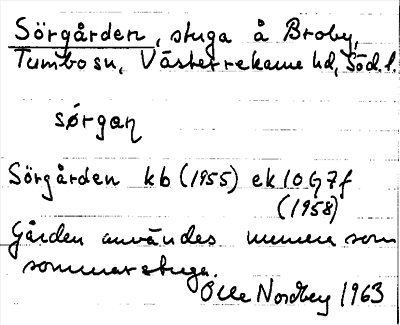 Sörgården, stuga å Broby,
Tumbo sn, Västerrekarne hd, Söd. l.
sørgaɳ
Sörgården kb (1955) ek 10G7f
(1958)
Gården användes numera som
sommarstuga.
Olle Nordberg 1963